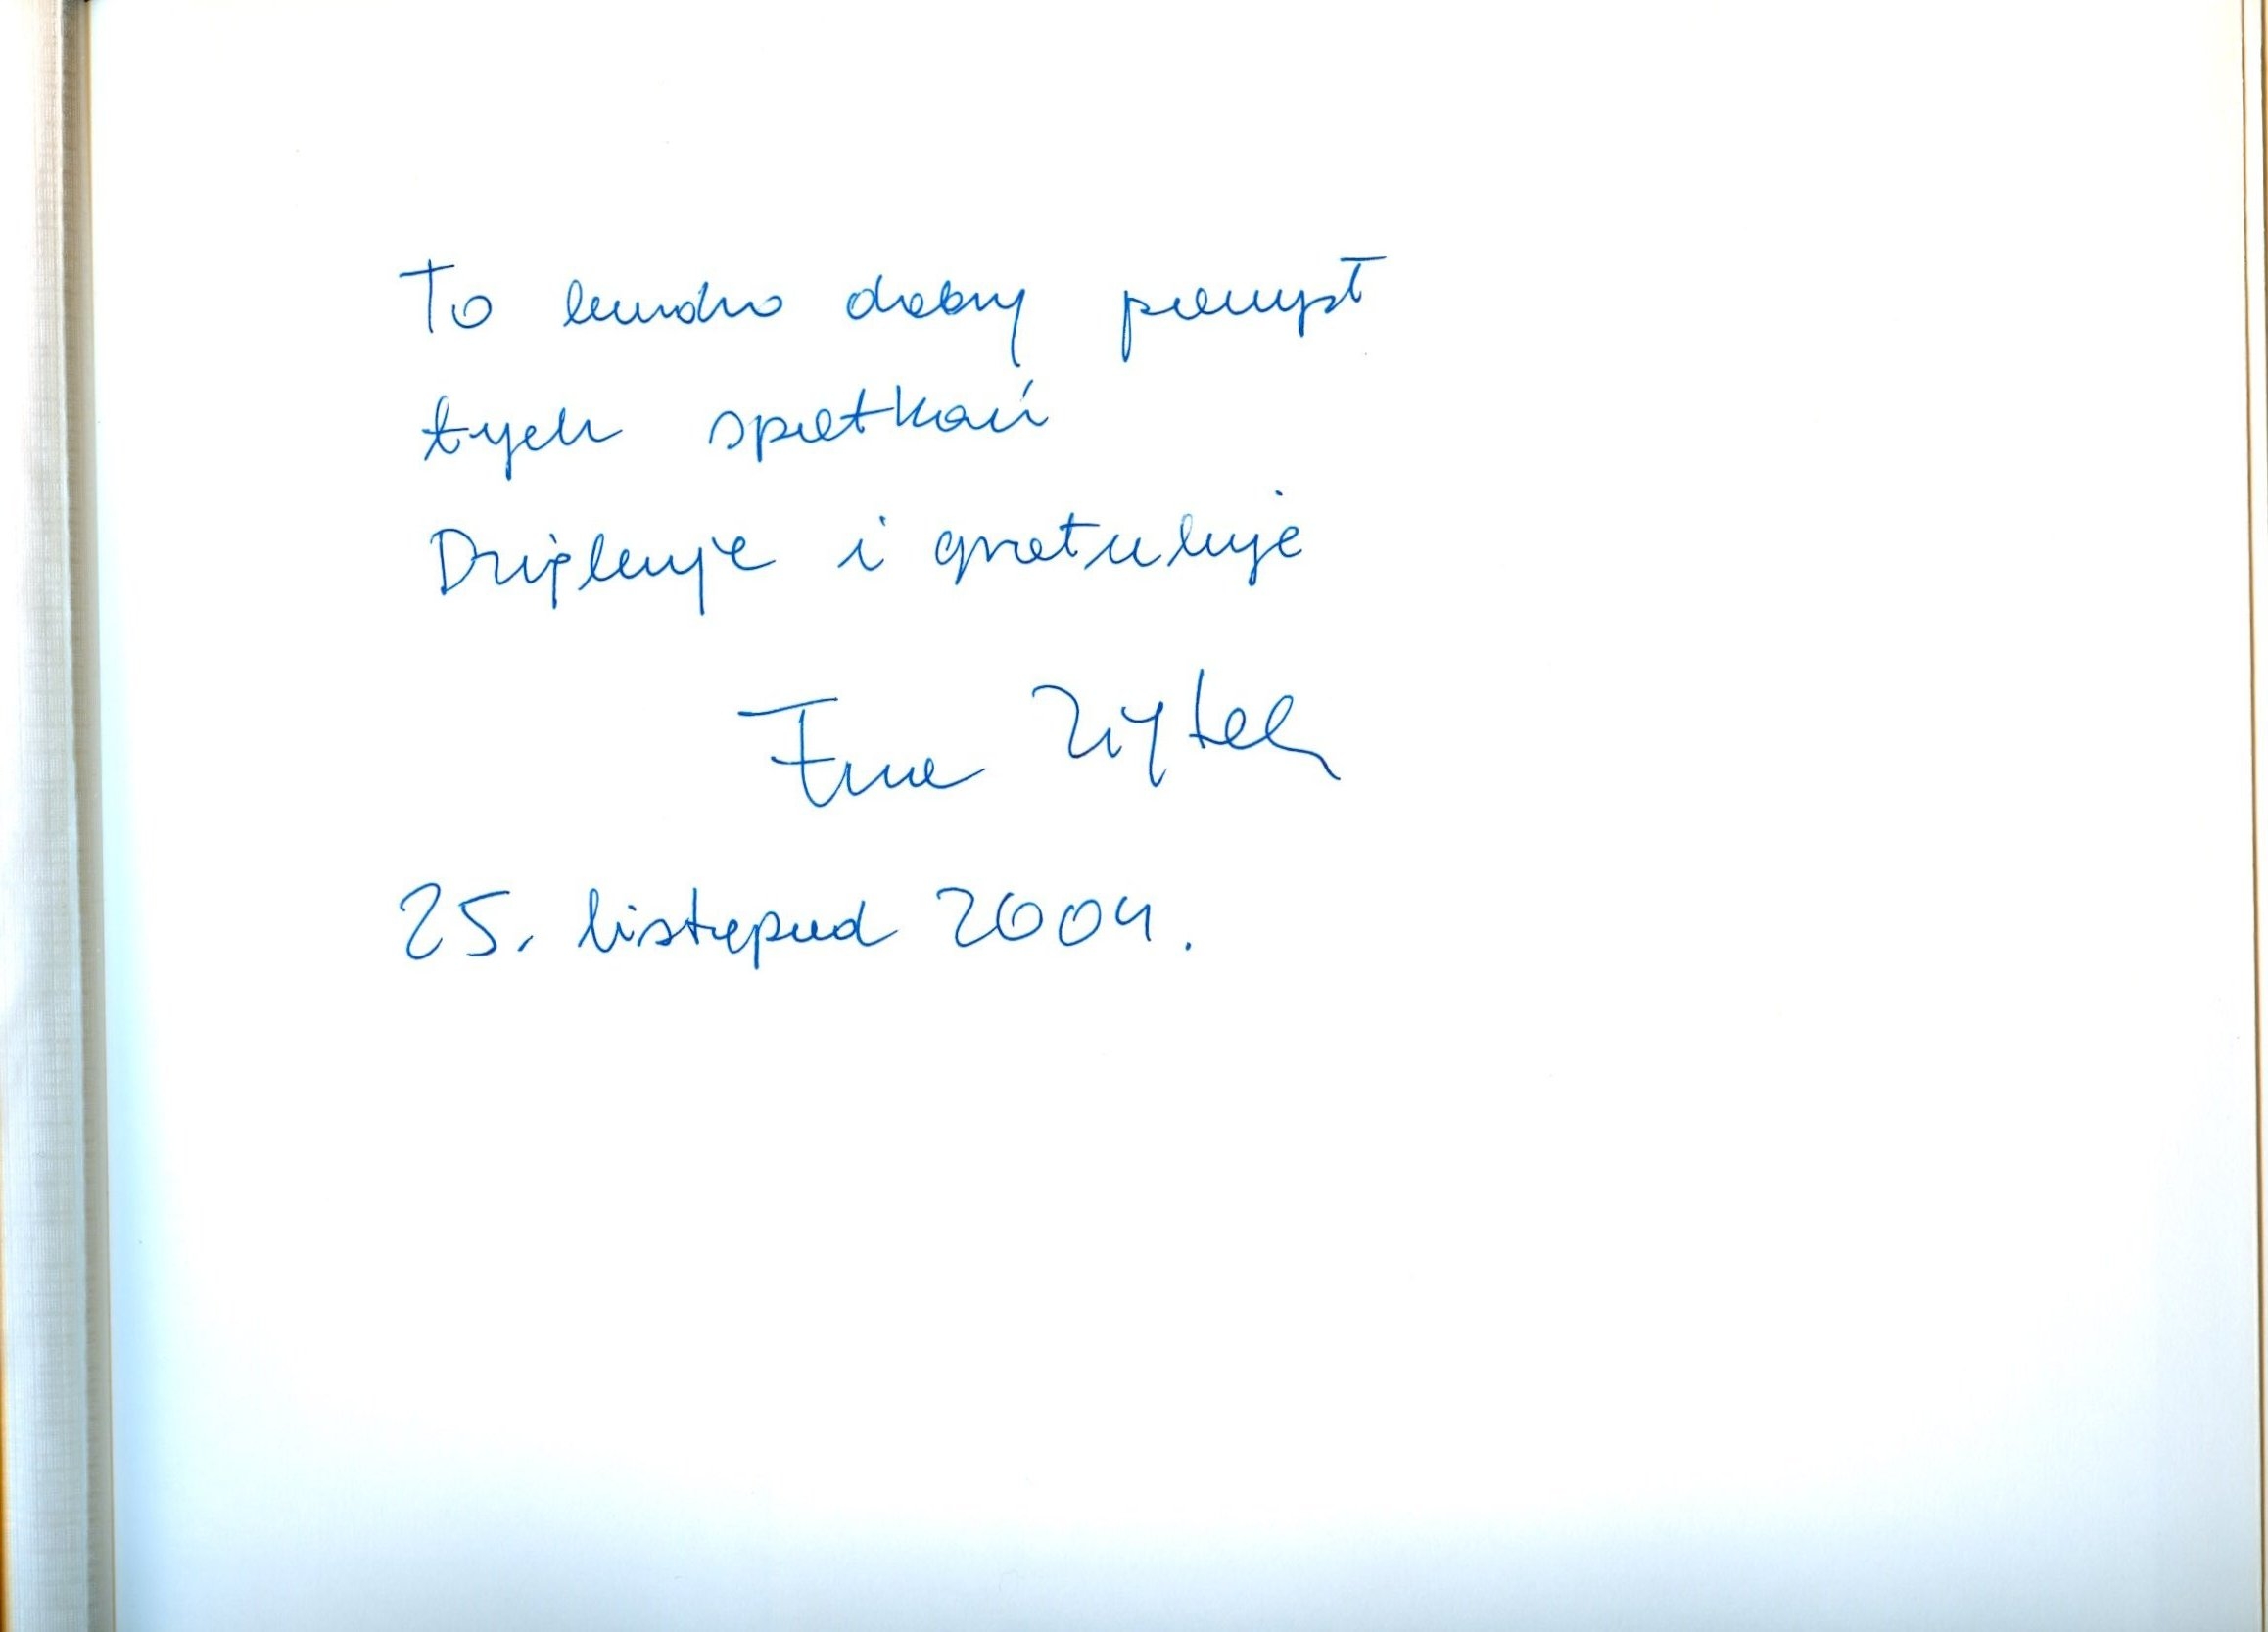 To bardzo dobry pomysł
tych spotkań
Dziękuję i gratuluję
Ewa Ziętek
25. listopad 2004.